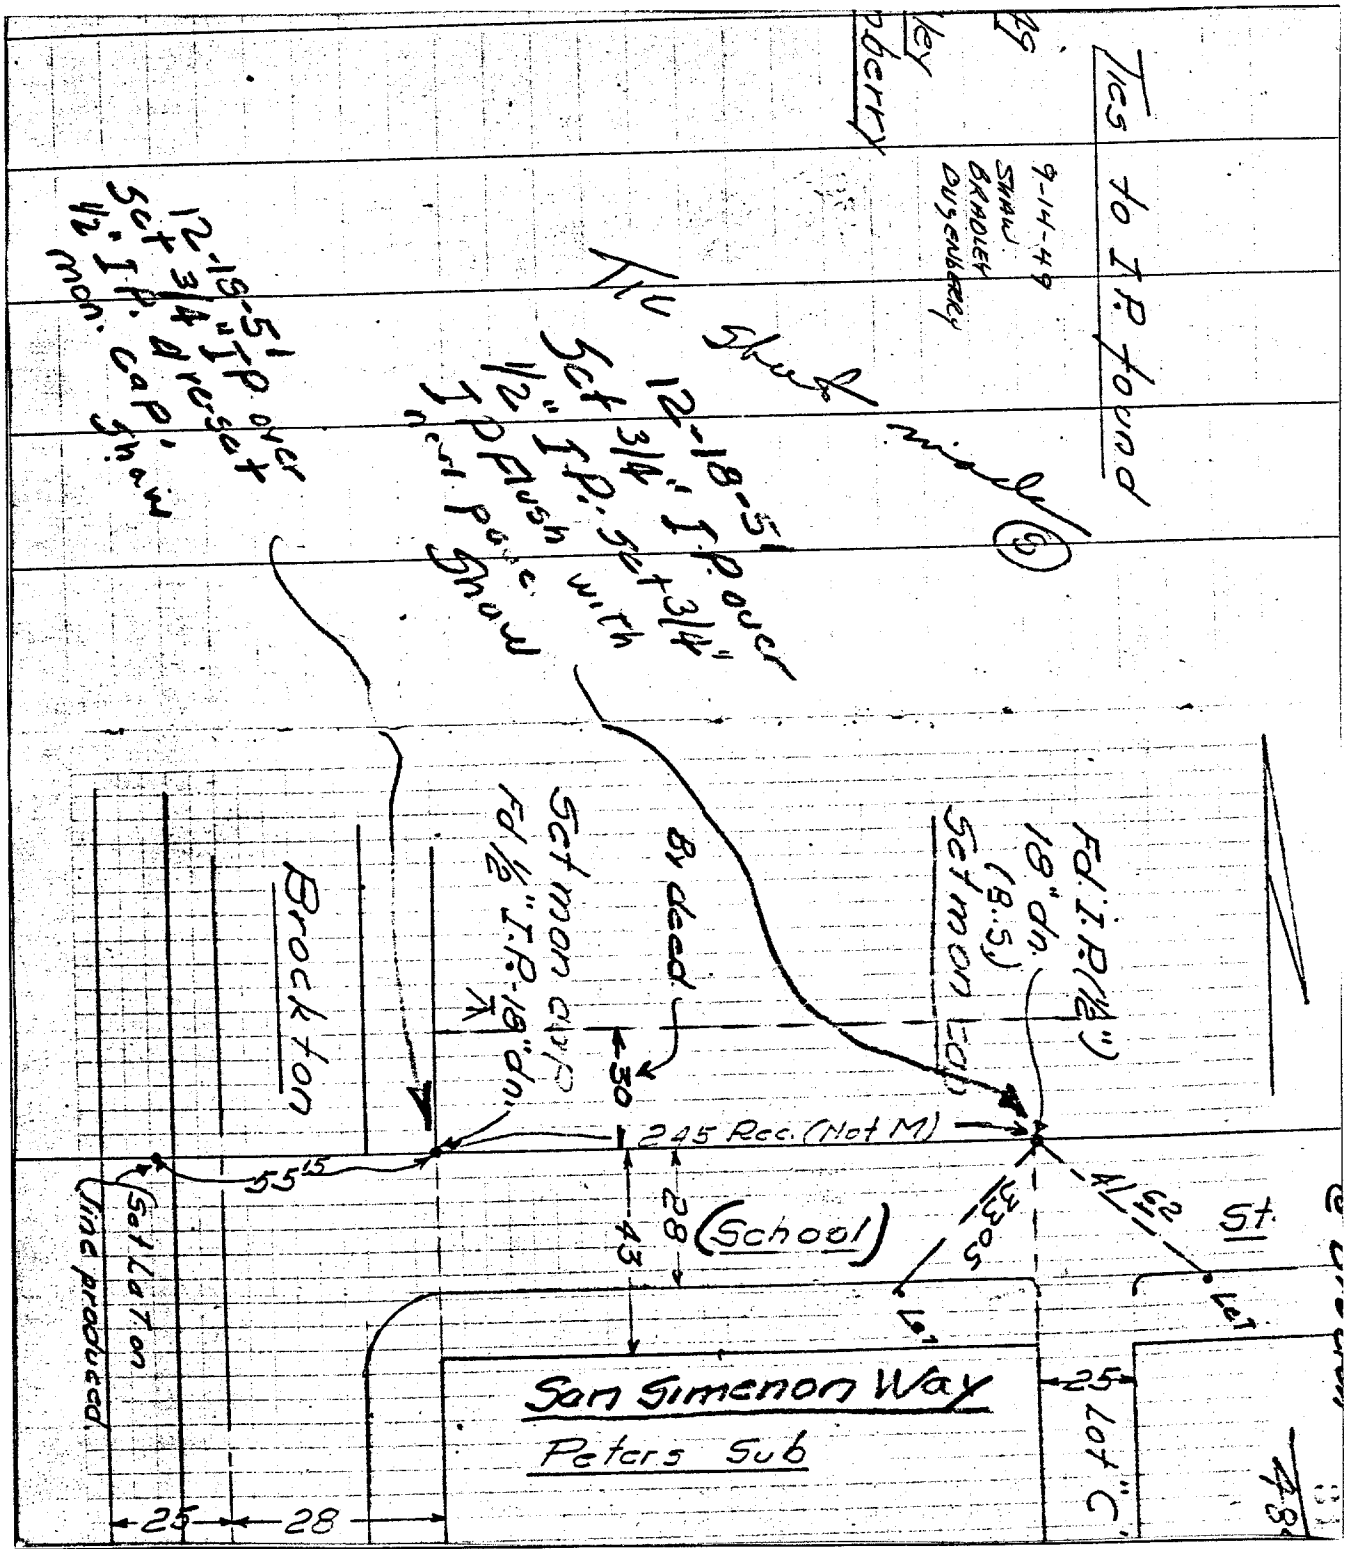 Ties to I.P. found
9-14-49
SHAW
BRADLEY
DUSENBERRY
Tie Sheet
12-18-51
Set 3/4" I.P. over
1/2" I.P. Set 3/4"
I P Flush with
new pave.
Shaw
12-18-51
Set 3/4" I.P. over
1/2" I.P. & re-set
mon. cap.
Shaw
Fd. I.P. (1/2")
18" dn.
(B.S)
Set mon cap
By deed
Set mon cap
Fd 1/2" I.P.-18" dn.
Brockton
30
245 Rec. (Not M)
55 15
Set L&T on
line produced.
28
43
(School)
33.05
St.
L&T
L&T
25
Lot "C"
San Simenon Way
Peters Sub
25
28